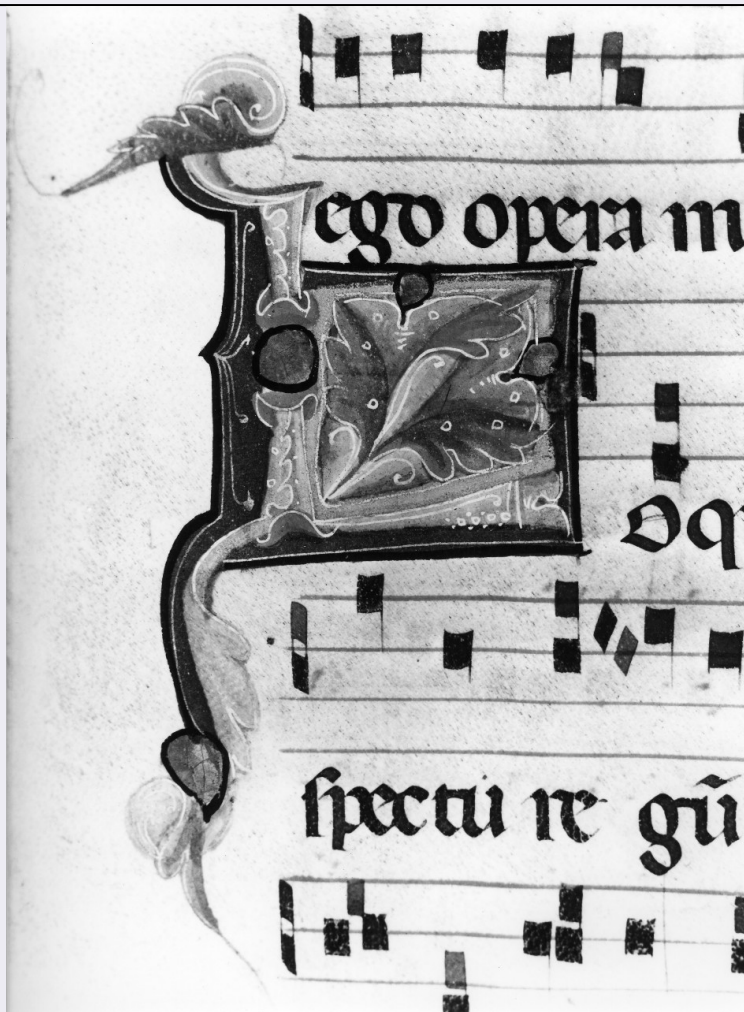 ego opera m
Loq
spectū re gū